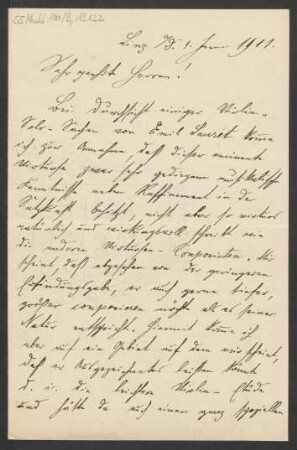 55 Nachl 100/B,
Linz a/D. 1. Juni 1911.
Sehr geehrte Herren!
Bei Durchsicht einiger Violin-
Solo-Sachen von Emil Sauret komme
ich zur Annahme, daß dieser eminente
Virtuose zwar sehr gediegene musikalische
Kenntnisse neben Raffinement in der
besitzt, nicht aber so
natürlich und wirkungsvoll schreibt wie
die anderen Virtuosen-Componisten. Mir
scheint, daß abgesehen von der geringeren
Erfindungsgabe, er auch gerne tiefer,
größer componieren möchte als es seiner
Natur entspricht. Hiermit komme ich
aber auf ein Gebiet auf dem mir scheint,
daß er Ausgezeichnetes leisten könnte
d. i. die leichtere Violin-Etüde
und hätte da auch einen ganz speziellen